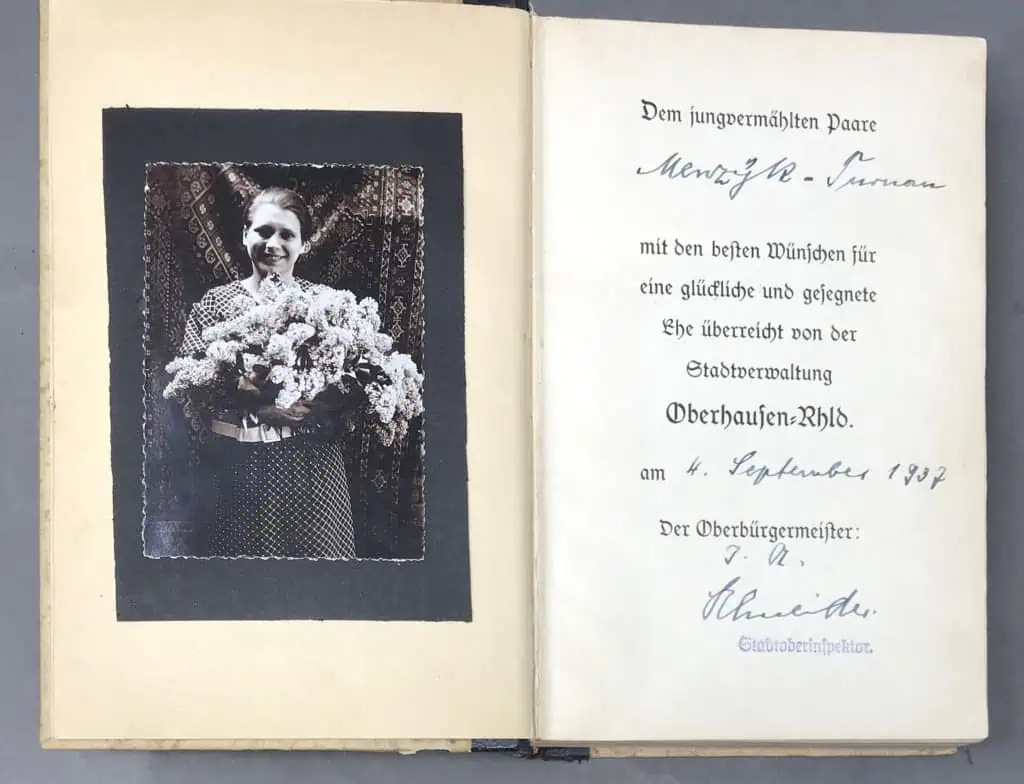 Dem jungvermählten Paare
Menzÿk - Turnau
mit den besten Wünschen für
eine glückliche und gesegnete
Ehe überreicht von der
Stadtverwaltung
Oberhausen=Rhld.
am 4. September 1937
Der Oberbürgermeister:
J. A.
Schneider.
Stadtoberinspektor.